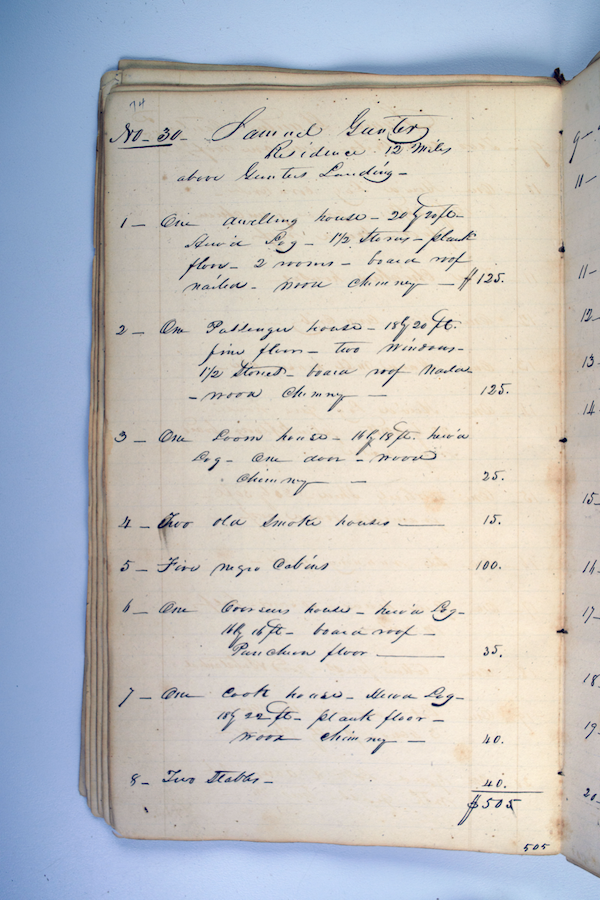 74
No- 30- Samuel Gunter
Residence 12 Miles
above Gunters Landing -
1 - One dwelling house - 20 by 20 ft -
Hew'd Log - 1 1/2 Stories - plank
floor - 2 rooms - board roof
nailed - wood chimney - $125.
2 - One Passenger house - 18 by 20 ft.
pine floor - two windows -
1 1/2 Stories - board roof nailed
- wood chimney - 125.
3 - One Loom house - 16 by 18 ft. hew'd
Log - One door - wood
chimney - 25.
4 - Two old Smoke houses - 15.
5 - Five negro Cabins 100.
6 - One Overseers house - hew'd Log -
16 by 16 ft - board roof -
Puncheon floor - 35.
7 - One Cook house - Hewd Log -
18 by 22 ft - plank floor -
wood chimney - 40.
8 - Two Stables - 40.
$505
505
9-
11-
11-
12-
13-
14-
15-
16-
17-
18-
19-
20-